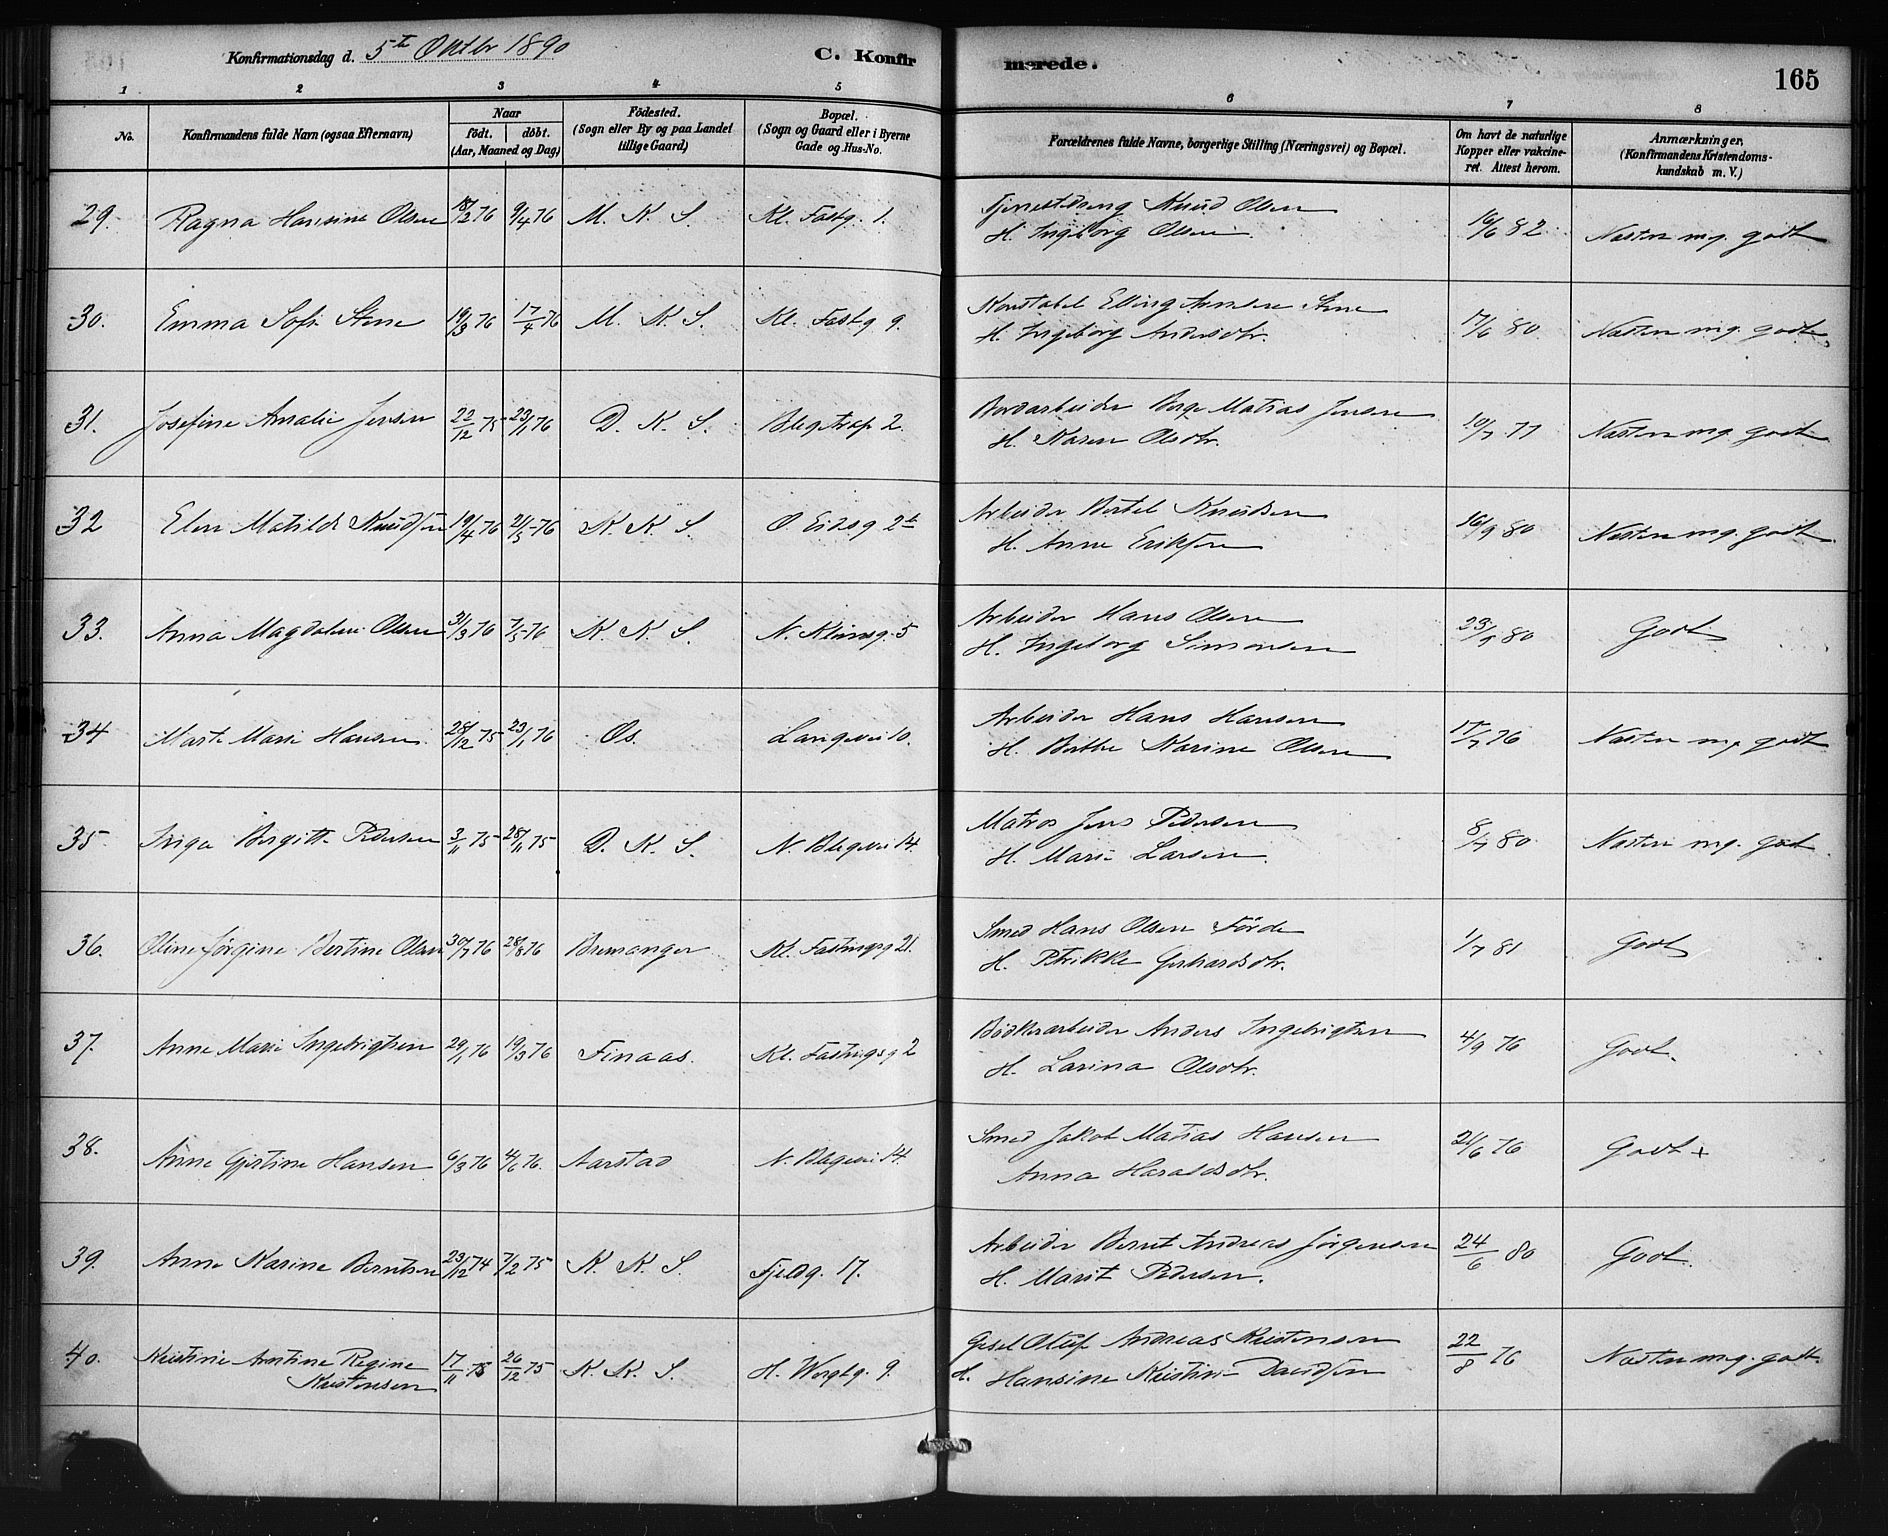 Konfirmationsdag d. 5te Oktbr 1890
C. Konfirmerede.
165
1 2 3 4 5 6 7 8
No.
Konfirmandens fulde Navn (ogsaa Efternavn)
Naar
födt. döbt.
(Aar, Maaned og Dag)
Födested.
(Sogn eller By og paa Landet
tillige Gaard)
Bopæl.
(Sogn og Gaard eller i Byerne
Gade og Hus-No.
Forældrenes fulde Navne, borgerlige Stilling (Næringsvei) og Bopæl.
Om havt de naturlige
Kopper eller vakcine-
ret. Attest herom.
Anmærkninger,
(Konfirmandens Kristendoms-
kundskab m. V.)
29. Ragna Hansine Olsen 18/2 76 9/4 76 M. K. S. Kl. Fastg. 1. Tjenestdreng Knud Olsen 16/6 82 Næsten mg. godt
H. Ingeborg Olsen
30. Emma Sofie Stene 19/3 76 17/4 76 M. K. S. Kl. Fastg. 9. Konstabel Elling Stene 17/6 80 Næsten mg. godt
H. Ingeborg Andersdtr.
31. Josefine Amalie Jensen 22/12 75 23/1 76 D. K. S. Blegstræp 2. Bordarbeider Berge Matias Jensen 10/7 77 Næsten mg. godt
H. Karen Olsdtr.
32 Elen Matilde Knudsen 19/4 76 21/5 76 K. K. S. O Eidsg 2b Arbeider Bertel Knudsen 16/9 80 Næsten mg. godt
H. Anne Eriksen
33. Anna Magdalene Olsen 31/3 76 7/5 76 K. K. S. N. Klimsg. 5 Arbeider Hans Olsen 23/7 80 Godt
H. Ingeborg Simonsen
34 Marte Marie Hansen 28/12 75 23/1 76 Os. Langevei 10. Arbeider Hans Hansen 17/7 76 Næsten mg godt
H. Berthe Karine Olsen
35 Inga Bergitte Pedersen 3/11 75 28/11 75 D. K. S. N. Blegevei 14. Matros Jens Pedersen 8/7 80 Næsten mg. godt
H. Marie Larsen
36. Oline Jørgine Bertine Olsen 30/7 76 28/8 76 Bremanger Kl. Fastingsg 21. Smed Hans Olsen Förde 1/7 81 Godt
H. Petrikke Gerhardsdtr.
37. Anne Marie Ingebrigtsen 29/1 76 19/3 76 Finaas. Kl. Fastingsg 2 Bødkerarbeider Anders Ingebrigtsen 4/9 76 Godt.
H. Larina Olsdtr.
38. Anne Gjertine Hansen 6/3 76 4/6 76. Aarstad N. Blegevei 14. Smed Jakob Matias Hansen 21/6 76 Godt +
Anna Haraldsdtr.
39. Anne Karine Berntsen 23/12 74 7/2 75 K. K. S. Fjeldg. 17. Arbeider Bernt Andreas Jørgensen 24/6 80 Godt.
H. Marit Pedersen.
40. Kristine Regine 17/11 75 26/12 75 K. K. S. H. Wergtg. 9. Gjest Oluf Andreas Kristensen 22/8 76 Næsten mg. godt.
Kristensen H. Hansine Kristine Davidsen